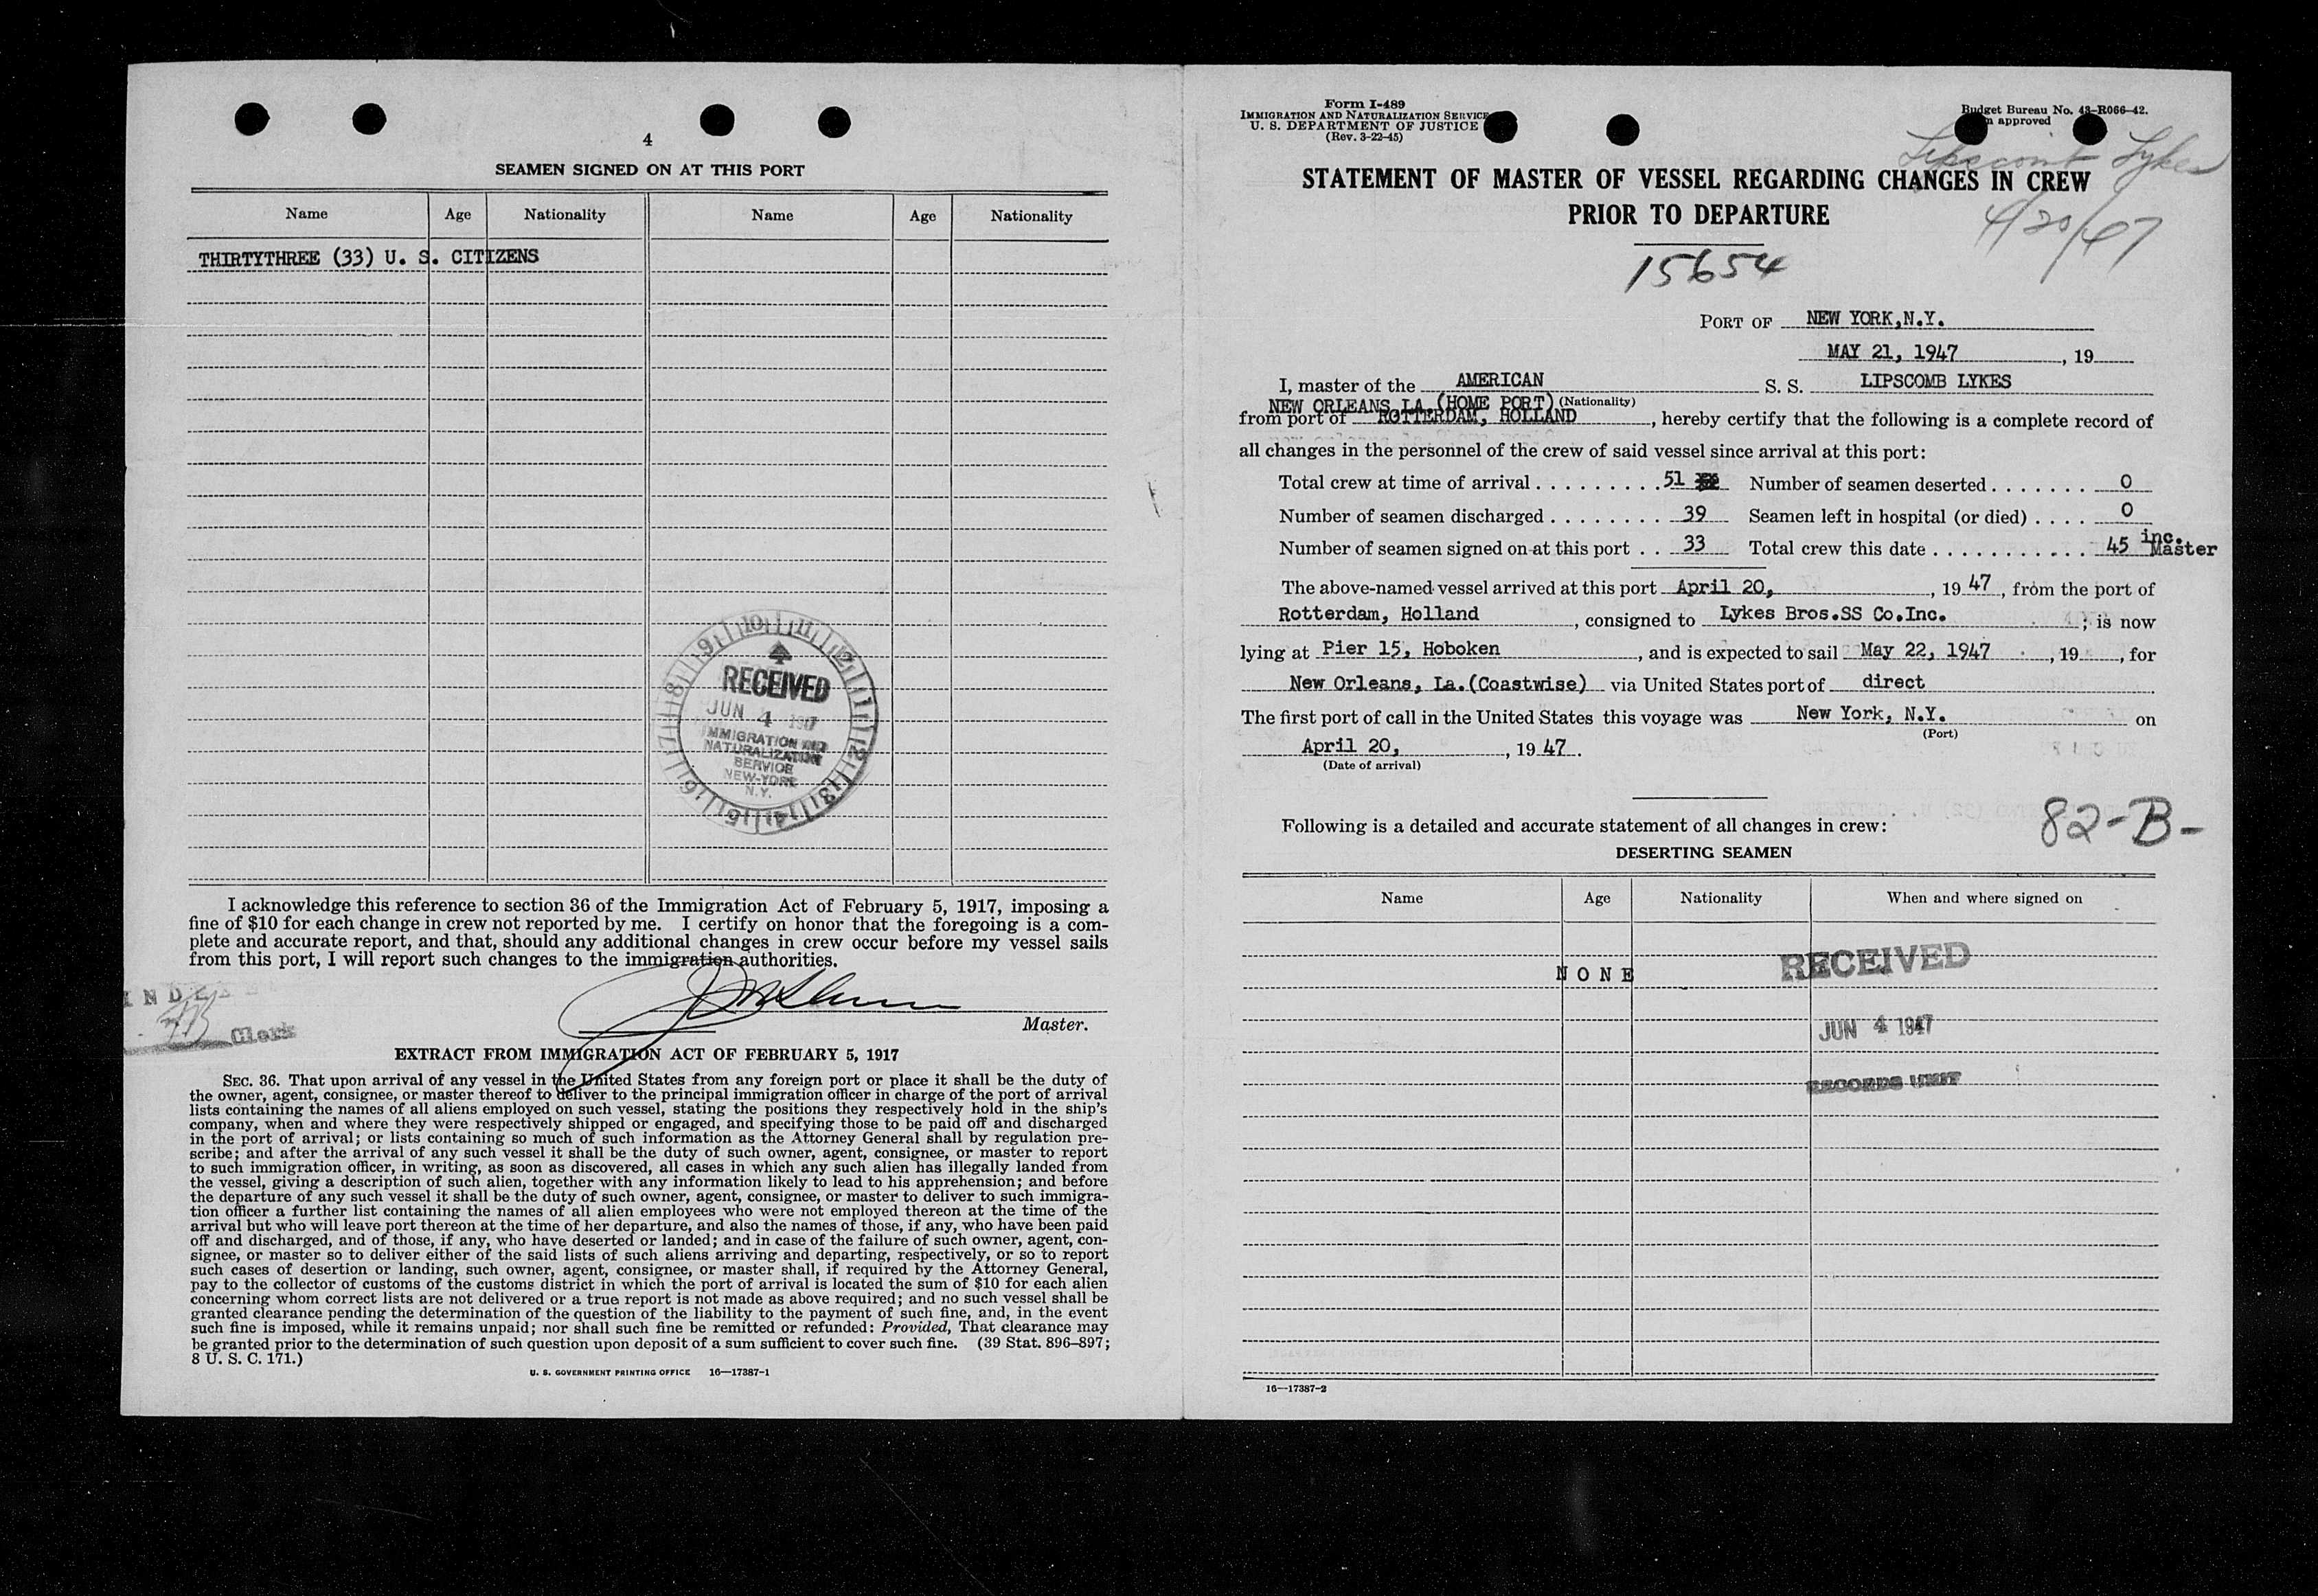 4
SEAMEN SIGNED ON AT THIS PORT
Name Age Nationality Name Age Nationality
THIRTYTHREE (33) U. S. CITIZENS
9 10 11 12 1 2 3 4 5 6 7 8
RECEIVED
JUN 4 1947
IMMIGRATION AND
NATURALIZATION
SERVICE
NEW-YORK
N.Y.
I acknowledge this reference to section 36 of the Immigration Act of February 5, 1917, imposing a
fine of $10 for each change in crew not reported by me. I certify on honor that the foregoing is a com-
plete and accurate report, and that, should any additional changes in crew occur before my vessel sails
from this port, I will report such changes to the immigration authorities.
Clerk
Master.
EXTRACT FROM IMMIGRATION ACT OF FEBRUARY 5, 1917
SEC. 36. That upon arrival of any vessel in the United States from any foreign port or place it shall be the duty of
the owner, agent, consignee, or master thereof to deliver to the principal immigration officer in charge of the port of arrival
lists containing the names of all aliens employed on such vessel, stating the positions they respectively hold in the ship's
company, when and where they were respectively shipped or engaged, and specifying those to be paid off and discharged
in the port of arrival; or lists containing so much of such information as the Attorney General shall by regulation pre-
scribe; and after the arrival of any such vessel it shall be the duty of such owner, agent, consignee, or master to report
to such immigration officer, in writing, as soon as discovered, all cases in which any such alien has illegally landed from
the vessel, giving a description of such alien, together with any information likely to lead to his apprehension; and before
the departure of any such vessel it shall be the duty of such owner, agent, consignee, or master to deliver to such immigra-
tion officer a further list containing the names of all alien employees who were not employed thereon at the time of the
arrival but who will leave port thereon at the time of her departure, and also the names of those, if any, who have been paid
off and discharged, and of those, if any, who have deserted or landed; and in case of the failure of such owner, agent, con-
signee, or master so to deliver either of the said lists of such aliens arriving and departing, respectively, or so to report
such cases of desertion or landing, such owner, agent, consignee, or master shall, if required by the Attorney General,
pay to the collector of customs of the customs district in which the port of arrival is located the sum of $10 for each alien
concerning whom correct lists are not delivered or a true report is not made as above required; and no such vessel shall be
granted clearance pending the determination of the question of the liability to the payment of such fine, and, in the event
such fine is imposed, while it remains unpaid; nor shall such fine be remitted or refunded: Provided, That clearance may
be granted prior to the determination of such question upon deposit of a sum sufficient to cover such fine. (39 Stat. 896-897;
8 U. S. C. 171.)
U. S. GOVERNMENT PRINTING OFFICE 16—17387-1
Form I-489
IMMIGRATION AND NATURALIZATION SERVICE
U. S. DEPARTMENT OF JUSTICE
(Rev. 3-22-45)
Budget Bureau No. 43-R066-42.
approved
Lipscomb Lykes
4/20/47
STATEMENT OF MASTER OF VESSEL REGARDING CHANGES IN CREW
PRIOR TO DEPARTURE
15654
PORT OF NEW YORK, N.Y.
MAY 21, 1947, 19
I, master of the AMERICAN S. S. LIPSCOMB LYKES
NEW ORLEANS, LA. (HOME PORT) (Nationality)
from port of ROTTERDAM, HOLLAND, hereby certify that the following is a complete record of
all changes in the personnel of the crew of said vessel since arrival at this port:
Total crew at time of arrival . . . . . . . . . 51 Number of seamen deserted . . . . . . . 0
Number of seamen discharged . . . . . . . . 39 Seamen left in hospital (or died) . . . . 0
Number of seamen signed on at this port . . 33 Total crew this date . . . . . . . . . . . 45 inc. Master
The above-named vessel arrived at this port April 20, , 19 47, from the port of
Rotterdam, Holland, consigned to Lykes Bros.SS Co.Inc. ; is now
lying at Pier 15, Hoboken, and is expected to sail May 22, 1947, 19 , for
New Orleans, La.(Coastwise) via United States port of direct
The first port of call in the United States this voyage was New York, N.Y. on
(Port)
April 20, , 19 47.
(Date of arrival)
82-B-
Following is a detailed and accurate statement of all changes in crew:
DESERTING SEAMEN
Name Age Nationality When and where signed on
RECEIVED
NONE
JUN 4 1947
RECORDS UNIT
16—17387-2